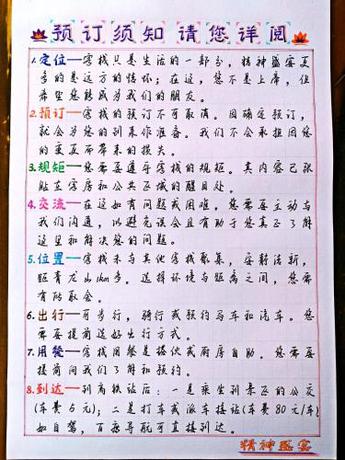 预订须知 请您详阅
1.定位—客栈只是生活的一部份,精神盛宴更
多的是远方的情怀;在这,您不是上帝,但
希望您能成为我们的朋友。
2.预订—客栈的预订不可取消。因确定预订,
就会为您的到来作准备。我们不会承担因您
的变更而带来的损失。
3.规矩—您需要遵守客栈的规矩。其内容已张
贴在客房和公共区域的醒目处。
4.交流—在这如有问题或困难,您需要主动与
我们沟通,以避免误会且有助于您真正了解
这里和解决您的问题。
5.位置—客栈未与其他客栈聚集,安静清新,
距青龙山1km多。选择环境与距离之间,您需
有所取舍。
6.出行—可步行,骑行或预约马车和汽车。您
需要提前选好出行方式。
7.用餐—客栈用餐是搭伙或厨房自助。您需要
提前问我们了解和预约。
8.到达—到高铁站后:一是乘坐到景区的公交
(车费5元);二是打车或派车接站(车费80元/车)
如自驾,百度导航可直接到达。
精神盛宴